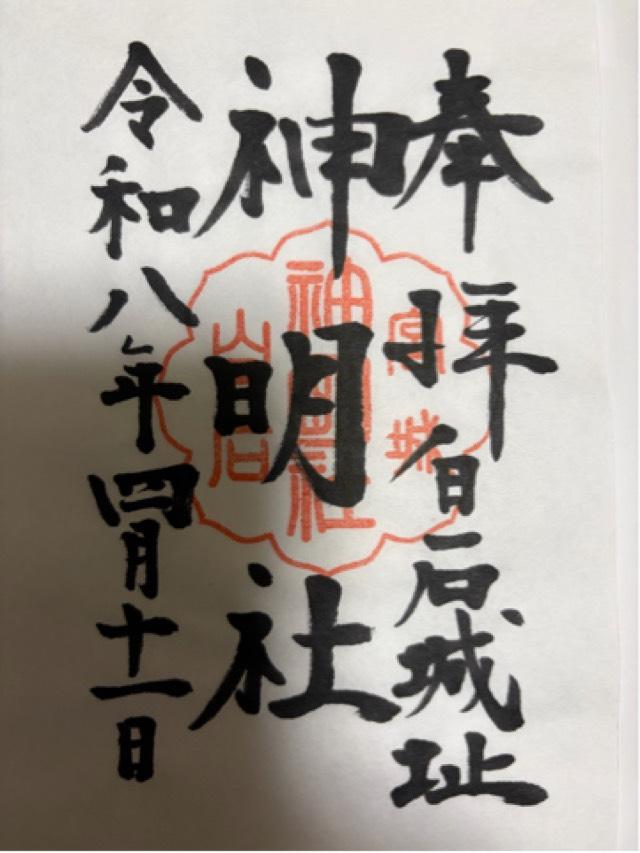 奉拝 白石城址
神明社
令和八年四月十一日
宮城
神明社
白石